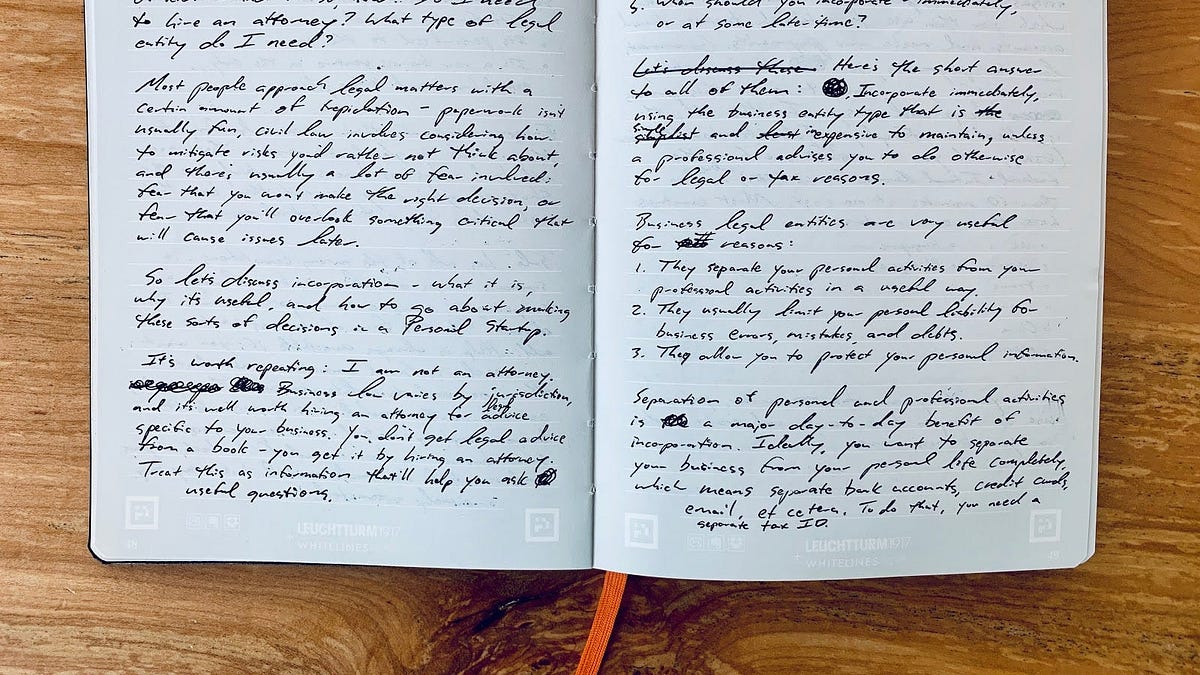 to hire an attorney? What type of legal
entity do I need?
Most people approach legal matters with a
certain amount of trepidation - paperwork isn't
usually fun, civil law involves considering how
to mitigate risks you'd rather not think about,
and there's usually a lot of fear involved:
fear that you won't make the right decision, or
fear that you'll overlook something critical that
will cause issues later.
So let's discuss incorporation - what it is,
why it's useful, and how to go about making
these sorts of decisions in a Personal Startup.
It's worth repeating: I am not an attorney.
Business law varies by jurisdiction,
and it's well worth hiring an attorney for legal advice
specific to your business. You don't get legal advice
from a book - you get it by hiring an attorney.
Treat this as information that'll help you ask
useful questions.
LEUCHTTURM1917
WHITELINES
48
5. When should you incorporate - immediately,
or at some later time?
Let's discuss these. Here's the short answer
to all of them: Incorporate immediately,
using the business entity type that is the
simplest and least inexpensive to maintain, unless
a professional advises you to do otherwise
for legal or tax reasons.
Business legal entities are very useful
for reasons:
1. They separate your personal activities from your
professional activities in a useful way.
2. They usually limit your personal liability for
business errors, mistakes, and debts.
3. They allow you to protect your personal information.
Separation of personal and professional activities
is a major day-to-day benefit of
incorporation. Ideally, you want to separate
your business from your personal life completely,
which means separate bank accounts, credit cards,
email, et cetera. To do that, you need a
separate tax ID.
LEUCHTTURM1917
WHITELINES
49